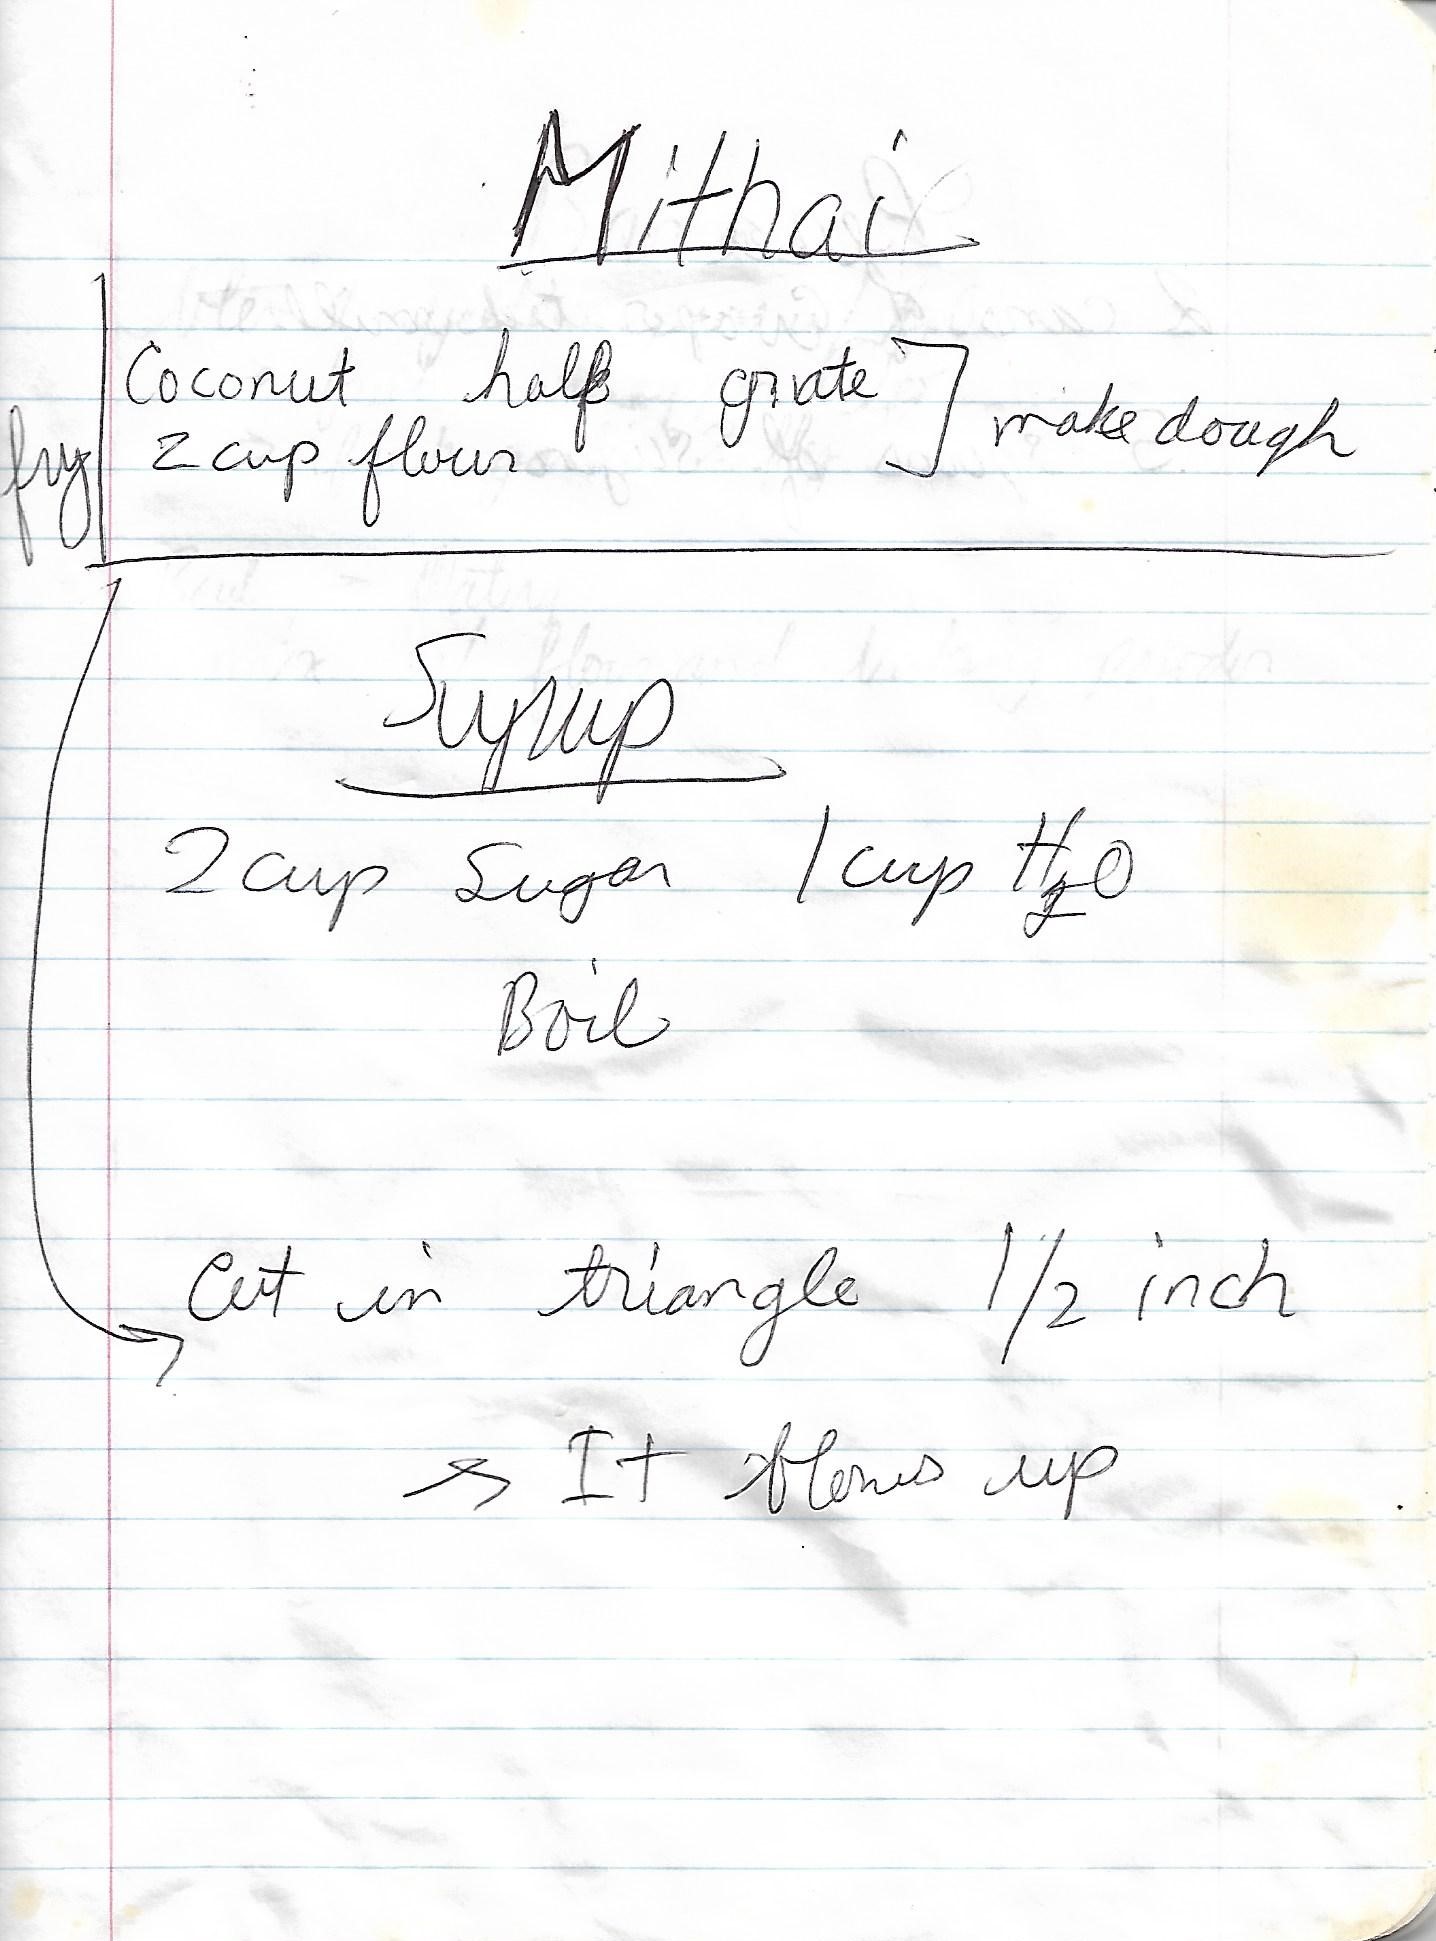 Mithai
Coconut half grate
2 cup flour
make dough
fry
Syrup
2 cup Sugar 1 cup H2O
Boil
Cut in triangle 1/2 inch
→ It flows up